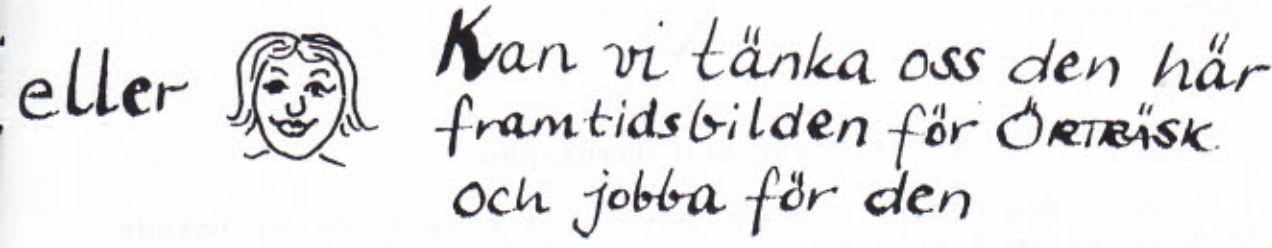 eller
Kan vi tänka oss den här
framtidsbilden för ÖRTRÄSK
och jobba för den